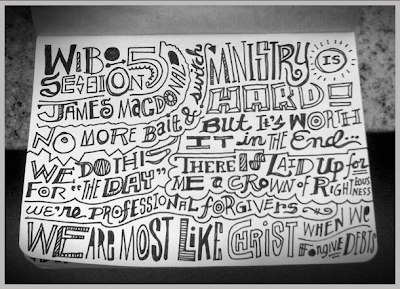 WIBO:
SESSION 5
JAMES MACDONALD
NO MORE Bait & switch
MINISTRY IS
HARD!
BUT It's WORTH
IT in the End...
WE DO THIS
FOR "THE DAY"
THERE IS LAID UP for
ME A CROWN OF RIGHTEOUSNESS
we're PROFESSIONAL forgivers
WE ARE MOST LIKE CHRIST WHEN WE
forgive DEBTS